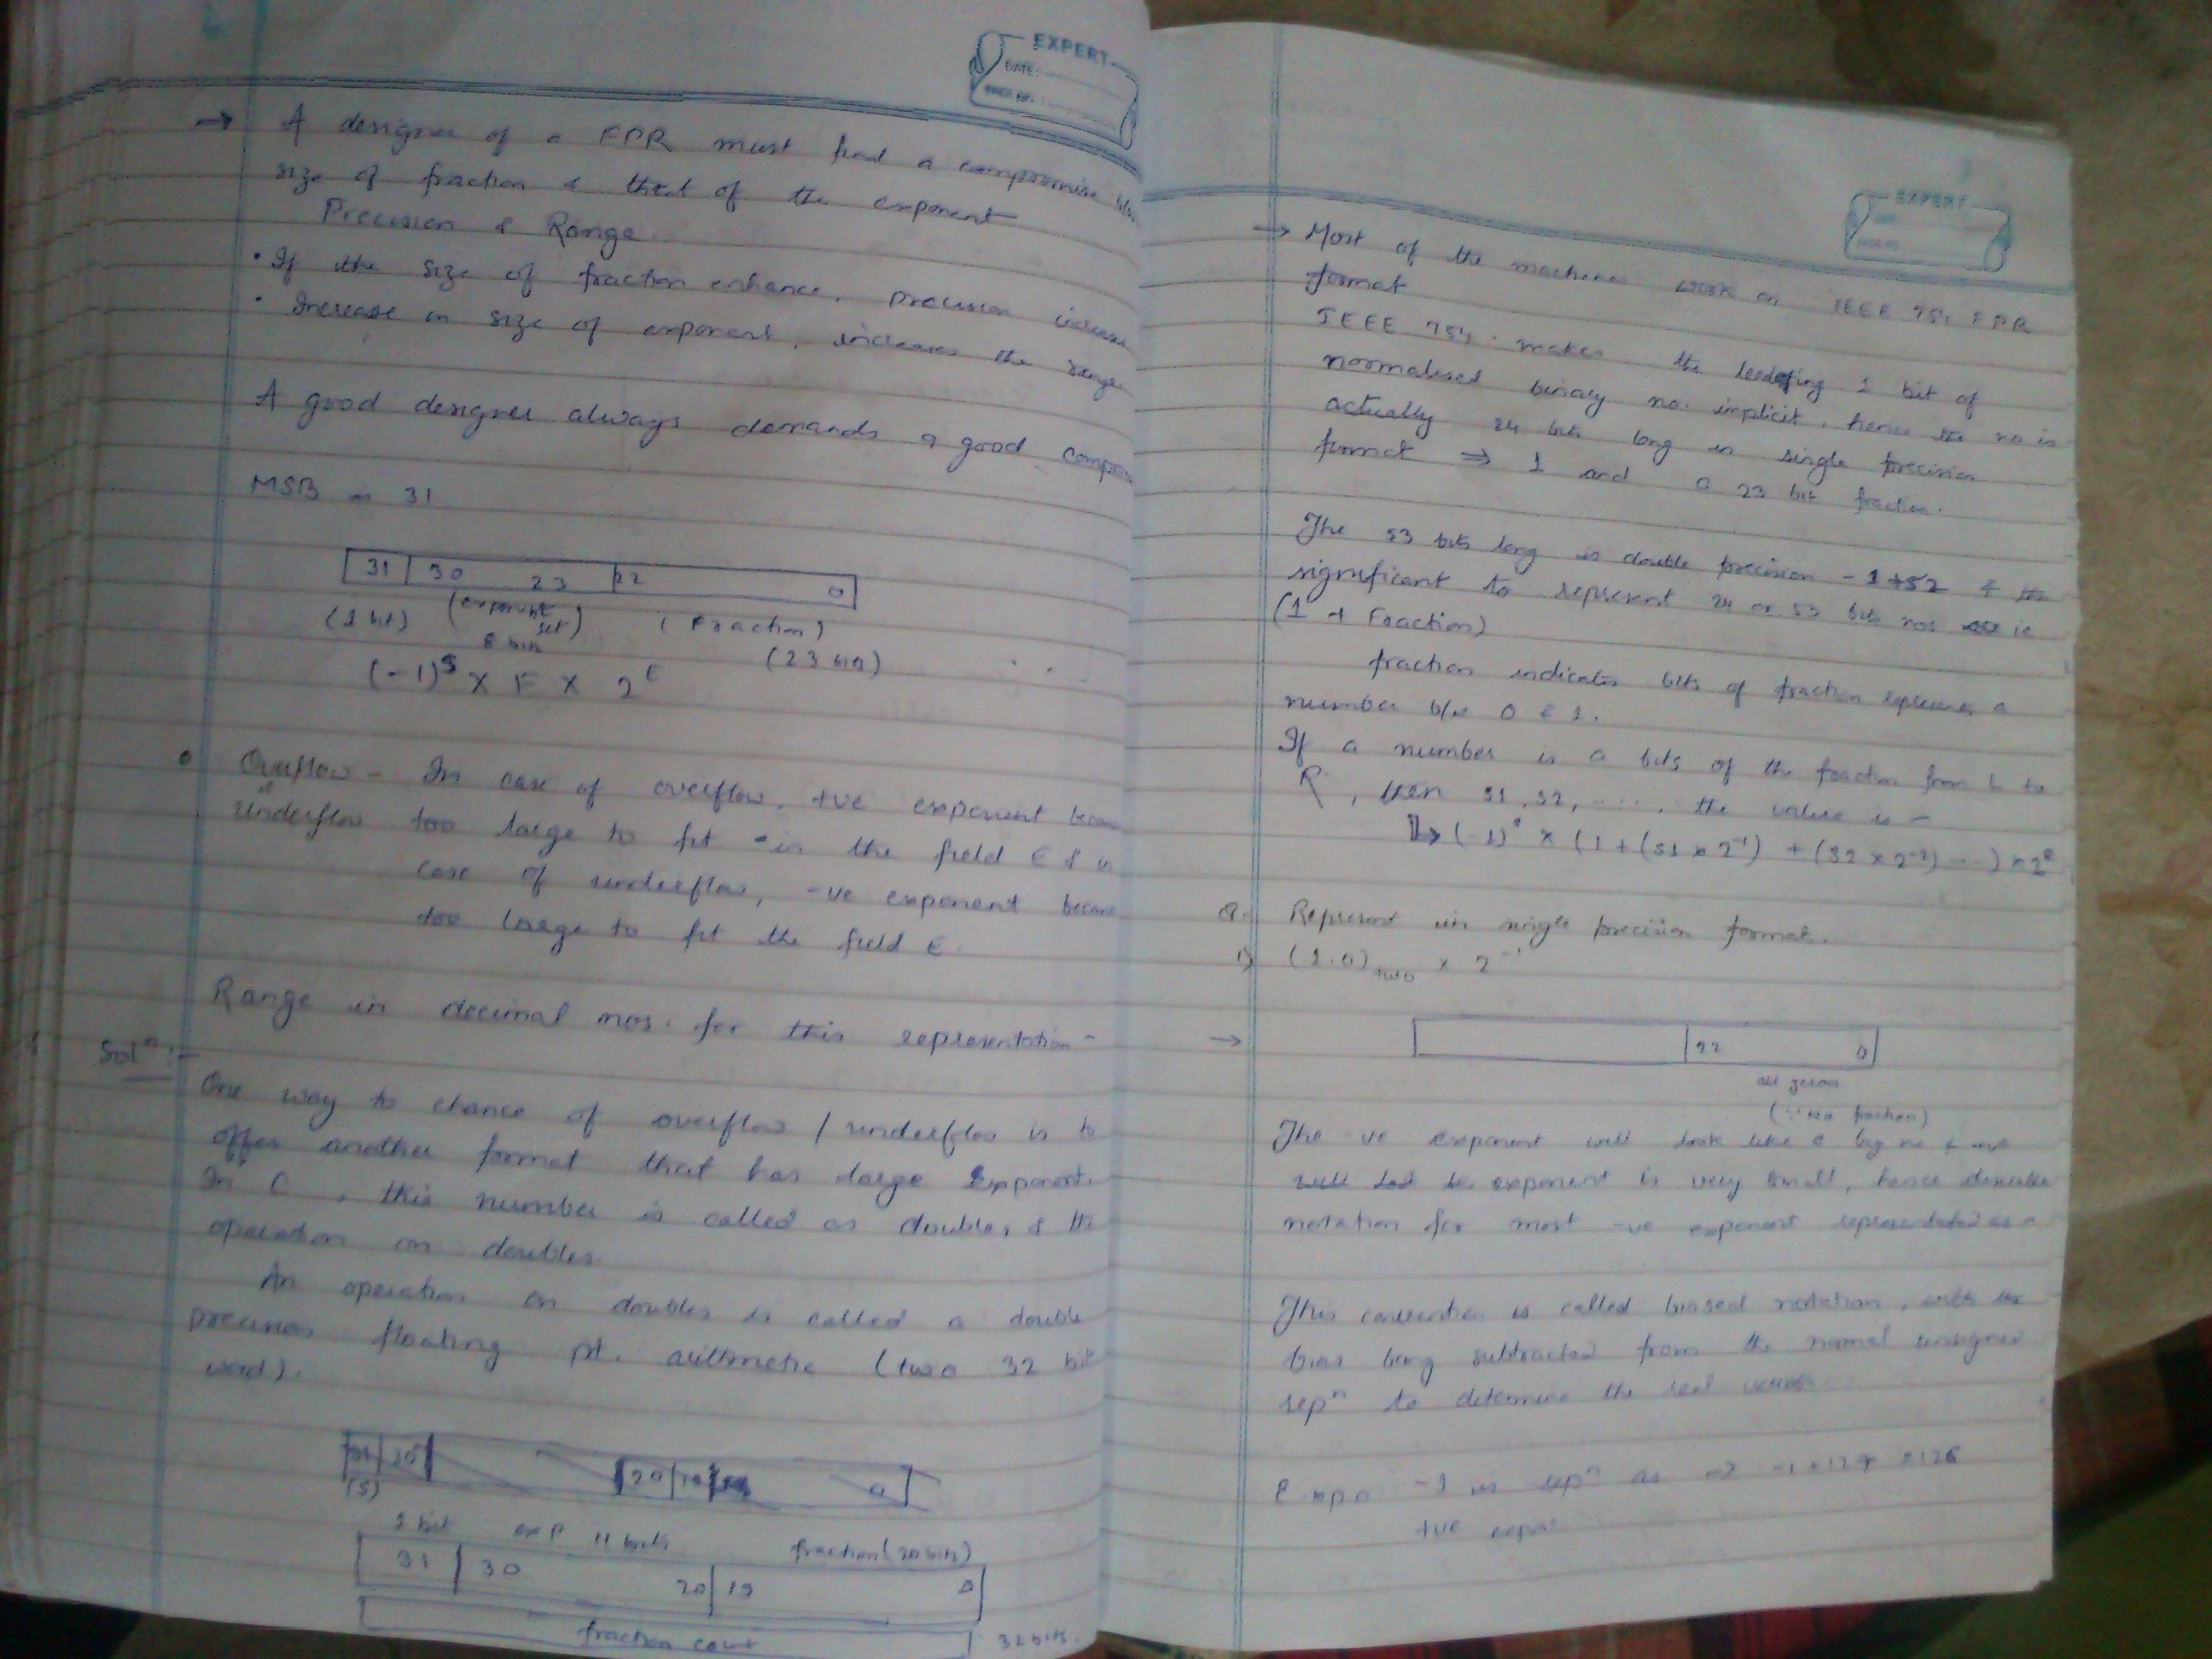 EXPERT
DATE:
PAGE NO.:
→ A designer of a FPR must find a compromise b/w
size of fraction & that of the exponent
Precision & Range.
• If the size of fraction enhance, precision increases
• Increase in size of exponent, increases the range
A good designer always demands a good compro
MSB in 31
31 30 23 22 0
(1 bit) (exponent set) 8 bits (Fraction) (23 bits)
(-1)^S X F X 2^E
Overflow - In case of overflow, +ve exponent becom
underflow too large to fit in the field E & in
case of underflow, -ve exponent becom
too large to fit the field E.
Range in decimal nos. for this representation -
Solⁿ :-
One way to chance of overflow / underflow is to
offer another format that has large Exponent.
In C, this number is called as doubles, & the
operation on doubles.
An operation on doubles is called a double
precision floating pt. arithmetic (two 32 bit
word).
(S) 20 19 0
1 bit exp 11 bits fraction (20 bits)
31 30 20 19 0
fraction cout 32 bits.
EXPERT
→ Most of the machines work on IEEE 754 FPR
format
IEEE 754 makes the leading 1 bit of
normalised binary no. implicit, hence the no is
actually 24 bits long in single precision
format ⇒ 1 and a 23 bit fraction.
The 53 bits long in double precision - 1+52 &
significant to represent 24 or 53 bits nos ie
(1 + Fraction)
fraction indicates bits of fraction represents a
number b/w 0 & 1.
If a number is a bits of the fraction from L to
R, then s1, s2, ....., the value is -
↳ (-1)^s × (1 + (s1 × 2^-1) + (s2 × 2^-2) ...) × 2^E
Q. Represent in single precision format.
1) (1.0)two × 2^-1
→ 22 0
all zeroes
(∵ no fraction)
The -ve exponent will look like a big no
exponent is very small, hence
notation for most -ve exponent represented as a
This convention is called biased notation, with the
bias being subtracted from the normal unsigned
repⁿ to determine the real
-1 is repⁿ as → -1 + 127 = 126
+ve